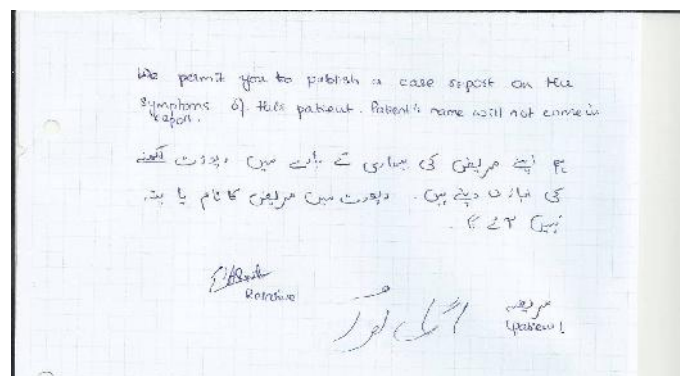 We permit you to publish a case report on the
symptoms of this patient. Patient's name will not come in
report.
ہم اپنے مریض کی بیماری کے بارے میں رپورٹ لکھنے
کی اجازت دیتے ہیں۔ رپورٹ میں مریض کا نام یا پتہ
نہیں آئے گا۔
Relative
مریضہ
(patient)